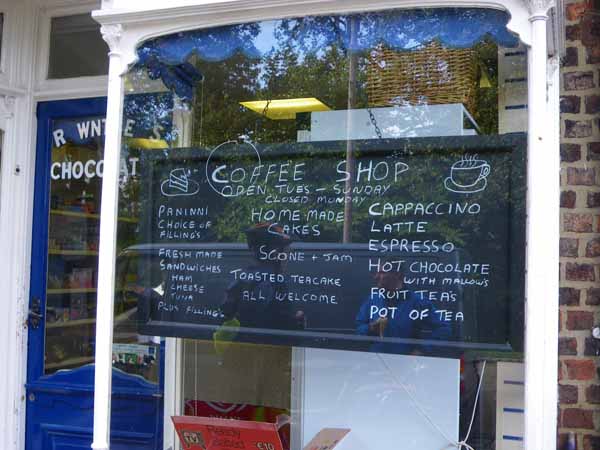 R WNT E S
CHOCOLAT
COFFEE SHOP
OPEN TUES - SUNDAY
CLOSED MONDAY
PANINNI
CHOICE OF
FILLING'S
FRESH MADE
SANDWICHES
HAM
CHEESE
TUNA
PLUS FILLING'S
HOMEMADE
CAKES
SCONE + JAM
TOASTED TEACAKE
ALL WELCOME
CAPPACCINO
LATTE
ESPRESSO
HOT CHOCOLATE
WITH MALLOWS
FRUIT TEA'S
POT OF TEA